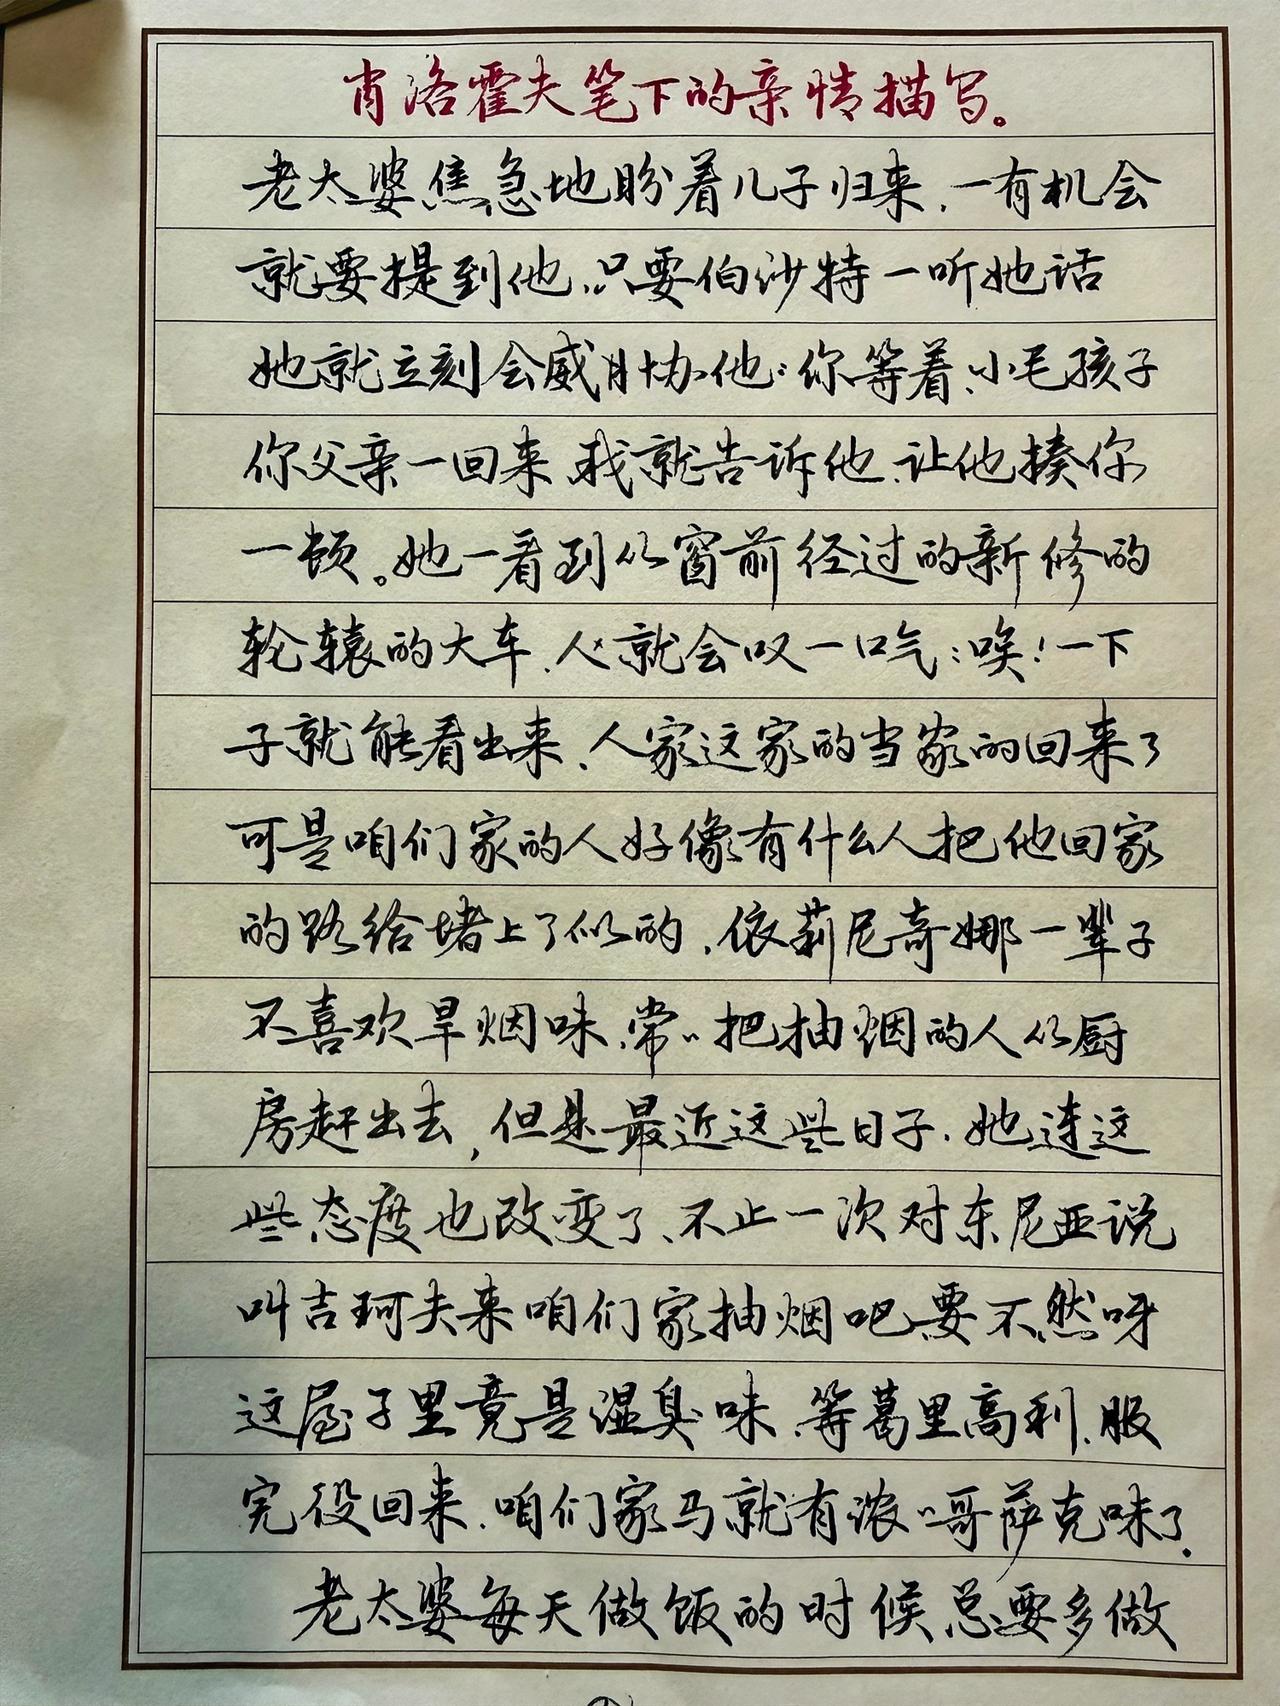 肖洛霍夫笔下的亲情描写。
老太婆焦急地盼着儿子归来，一有机会
就要提到他，只要伯沙特一听她话
她就立刻会威胁他：你等着，小毛孩子
你父亲一回来，我就告诉他，让他揍你
一顿。她一看到从窗前经过的新修的
轮辕的大车，人就会叹一口气：唉！一下
子就能看出来，人家这家的当家的回来了
可是咱们家的人好像有什么人把他回家
的路给堵上了似的，依莉尼奇娜一辈子
不喜欢旱烟味，常〃把抽烟的人从厨
房赶出去，但是最近这些日子，她连这
些态度也改变了，不止一次对东尼亚说
叫吉珂夫来咱们家抽烟吧，要不然呀
这屋子里竟是湿臭味，等葛里高利，服
完役回来，咱们家马就有浓〃哥萨克味了。
老太婆每天做饭的时候总要多做